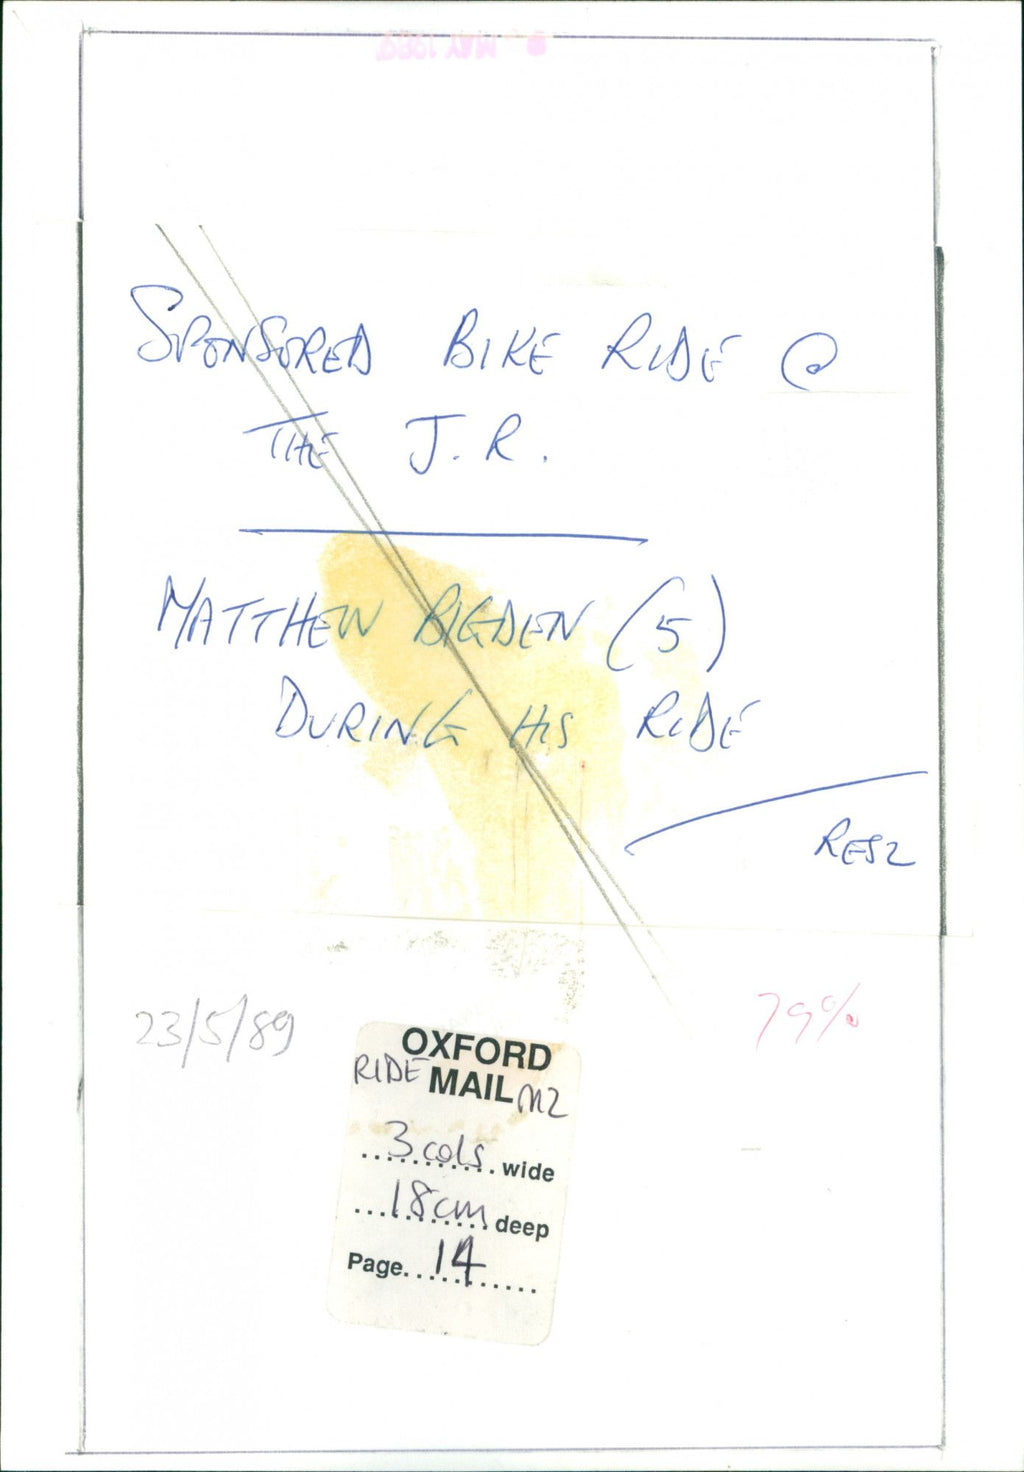 MAY 1989
SPONSORED BIKE RIDE @
THE J.R.
MATTHEW BIGDEN (5)
DURING HIS RIDE
23/5/89
79%
OXFORD
RIDE MAIL M2
3 cols wide
18cm deep
Page 14